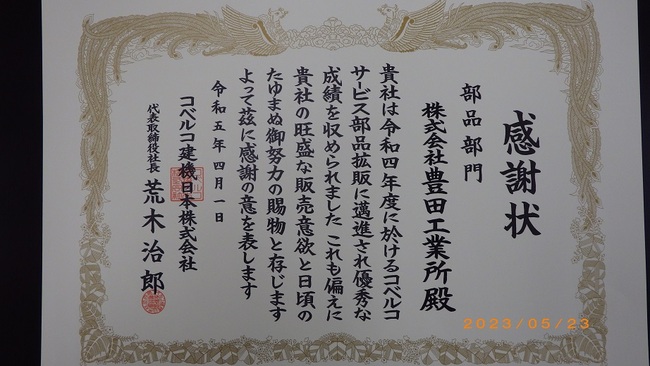 感謝状
部品部門
株式会社豊田工業所殿
貴社は令和四年度に於けるコベルコ
サービス部品拡販に邁進され優秀な
成績を収められました これも偏えに
貴社の旺盛な販売意欲と日頃の
たゆまぬ御努力の賜物と存じます
よって茲に感謝の意を表します
令和五年四月一日
コベルコ建機日本株式会社
代表取締役社長 荒木治郎
2023/05/23